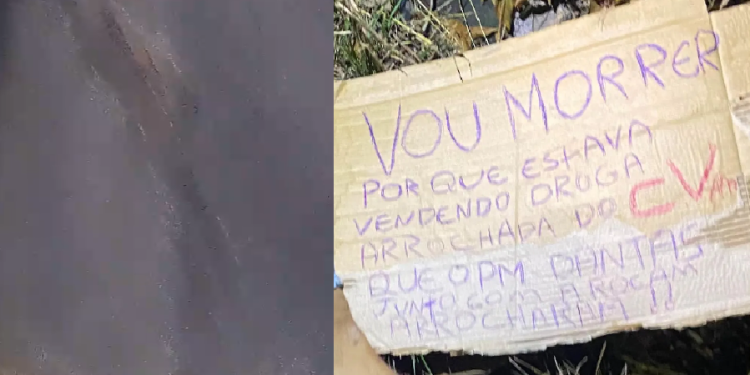 VOU MORRER
POR QUE ESTAVA
VENDENDO DROGA
ARROCHADA DO CV
QUE O PM DANTAS
JUNTO COM A ROCAM
ARROCHARAM !!